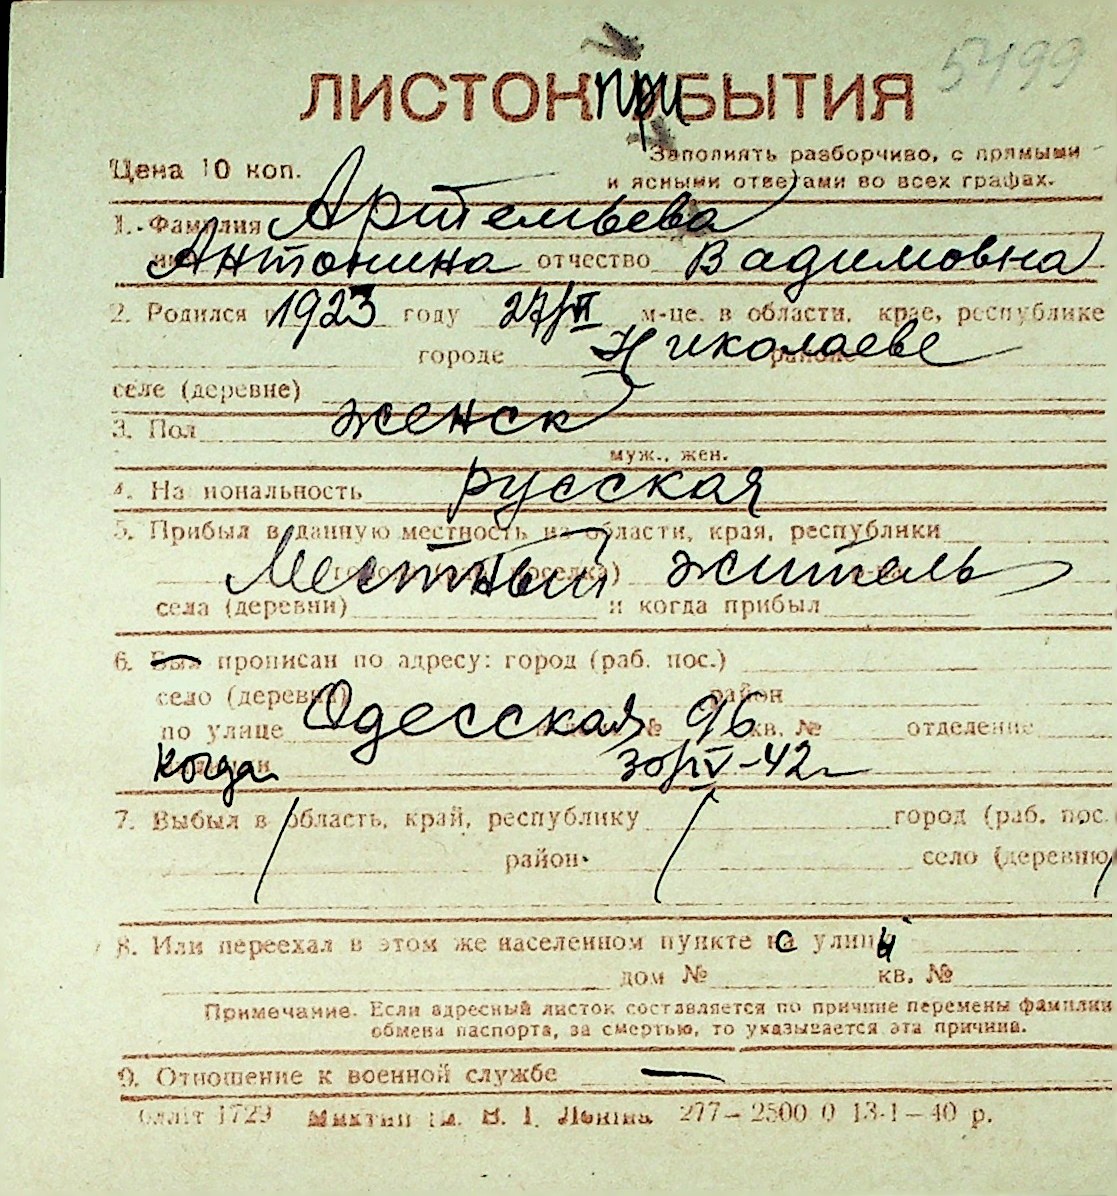 5499
ЛИСТОК при БЫТИЯ
Цена 10 коп.
Заполнять разборчиво, с прямыми
и ясными ответами во всех графах.
1. Фамилия Артемьева
Антонина отчество Вадимовна
2. Родился в 1923 году 27/VI м-це, в области, крае, республике
городе Николаеве районе
селе (деревне)
3. Пол женск
муж., жен.
4. Национальность русская
5. Прибыл в данную местность из области, края, республики
Местный житель
села (деревни) и когда прибыл
6. Был прописан по адресу: город (раб. пос.)
село (деревня) район
по улице Одесская № 96 кв. № отделение
когда 30/IV-42
7. Выбыл в область, край, республику город (раб. пос.
район село (деревню
8. Или переехал в этом же населенном пункте с улицы
дом № кв. №
Примечание. Если адресный листок составляется по причине перемены фамилии
обмена паспорта, за смертью, то указывается эта причина.
9. Отношение к военной службе —
1729 В. І. Леніна 277—2500 0 13-1—40 р.